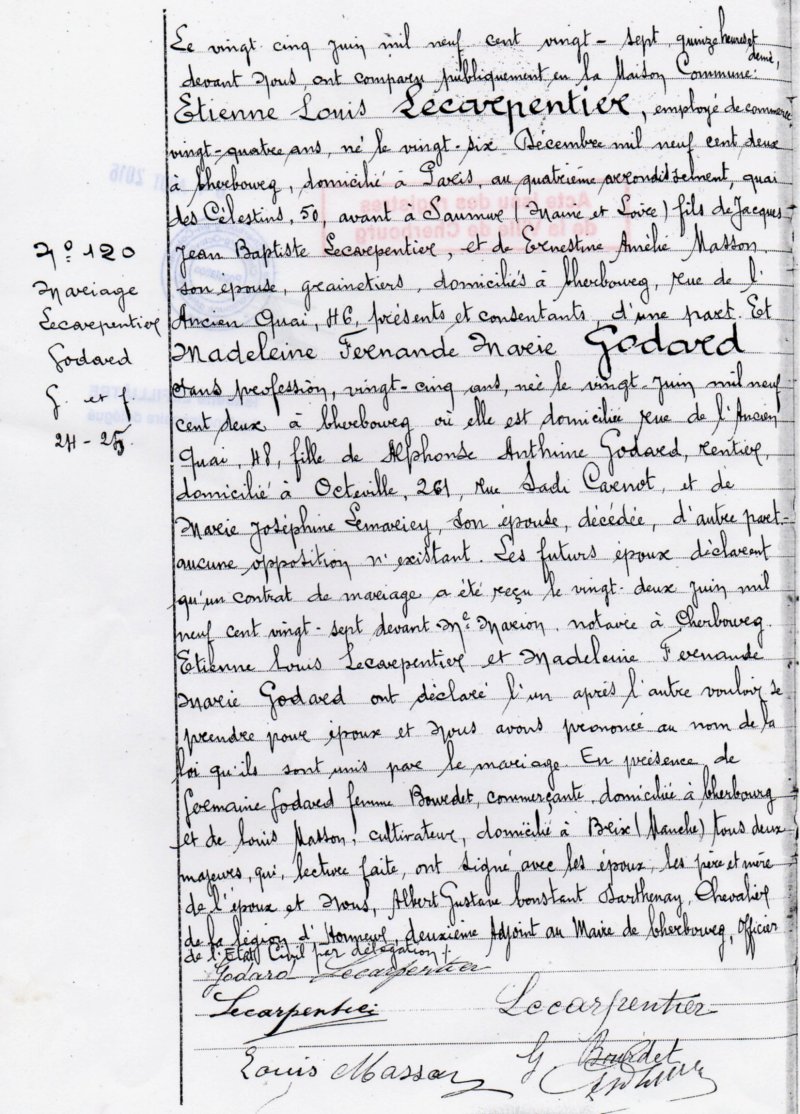 Le vingt cinq Juin mil neuf cent vingt-sept, quinze heures et demie,
devant Nous, ont comparu publiquement en la Maison Commune:
Etienne Louis Lecarpentier, employé de commerce
vingt-quatre ans, né le vingt-six Décembre mil neuf cent deux
à Cherbourg, domicilié à Paris, au quatrième arrondissement, quai
des Célestins, 50, avant à Saumur (Maine et Loire) fils de Jacques
Jean Baptiste Lecarpentier, et de Ernestine Amélie Masson,
son épouse, grainetiers, domiciliés à Cherbourg, rue de l'
Ancien Quai, 46, présents et consentants, d'une part. Et
Madeleine Fernande Marie Godard
sans profession, vingt-cinq ans, née le vingt-Juin mil neuf
cent deux à Cherbourg où elle est domiciliée rue de l'Ancien
Quai, 48, fille de Alphonse Anthime Godard, rentier,
domicilié à Octeville, 261, rue Sadi Carnot, et de
Marie Joséphine Lemariey, son épouse, décédée, d'autre part.-
aucune opposition n'existant. Les futurs époux déclarent
qu'un contrat de mariage a été reçu le vingt-deux Juin mil
neuf cent vingt-sept devant Me Marion, notaire à Cherbourg.
Etienne Louis Lecarpentier et Madeleine Fernande
Marie Godard ont déclaré l'un après l'autre vouloir se
prendre pour époux et Nous avons prononcé au nom de la
loi qu'ils sont unis par le mariage. En présence de
Germaine Godard femme Bourdet, commerçante, domiciliée à Cherbourg
et de Louis Masson, cultivateur, domicilié à Brix (Manche) tous deux
majeurs, qui, lecture faite, ont signé avec les époux, les père et mère
de l'époux et Nous, Albert Gustave Constant Parthenay, Chevalier
de la légion d'Honneur, deuxième Adjoint au Maire de Cherbourg, Officier
de l'Etat Civil par délégation
Godard Lecarpentier
Lecarpentier Lecarpentier
Louis Masson G Bourdet
No 120
Mariage
Lecarpentier
Godard
G. et f.
24-25
Acte issu des registres
de la Ville de Cherbourg
2016